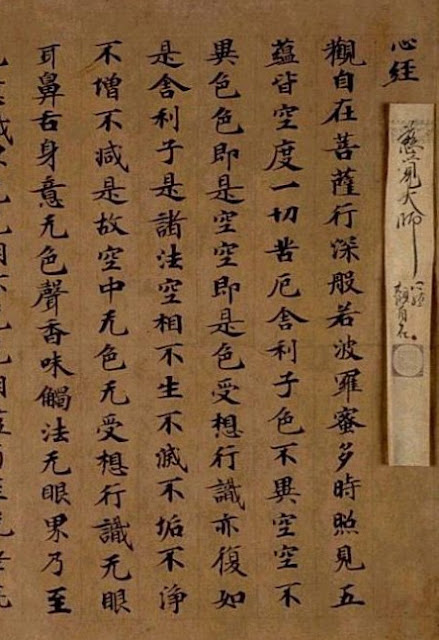 心経
慈覚大師
心経
観自在
觀自在菩薩行深般若波羅蜜多時照見五
蘊皆空度一切苦厄舍利子色不異空空不
異色色即是空空即是色受想行識亦復如
是舍利子是諸法空相不生不滅不垢不淨
不增不減是故空中无色无受想行識无眼
耳鼻舌身意无色聲香味觸法无眼界乃至